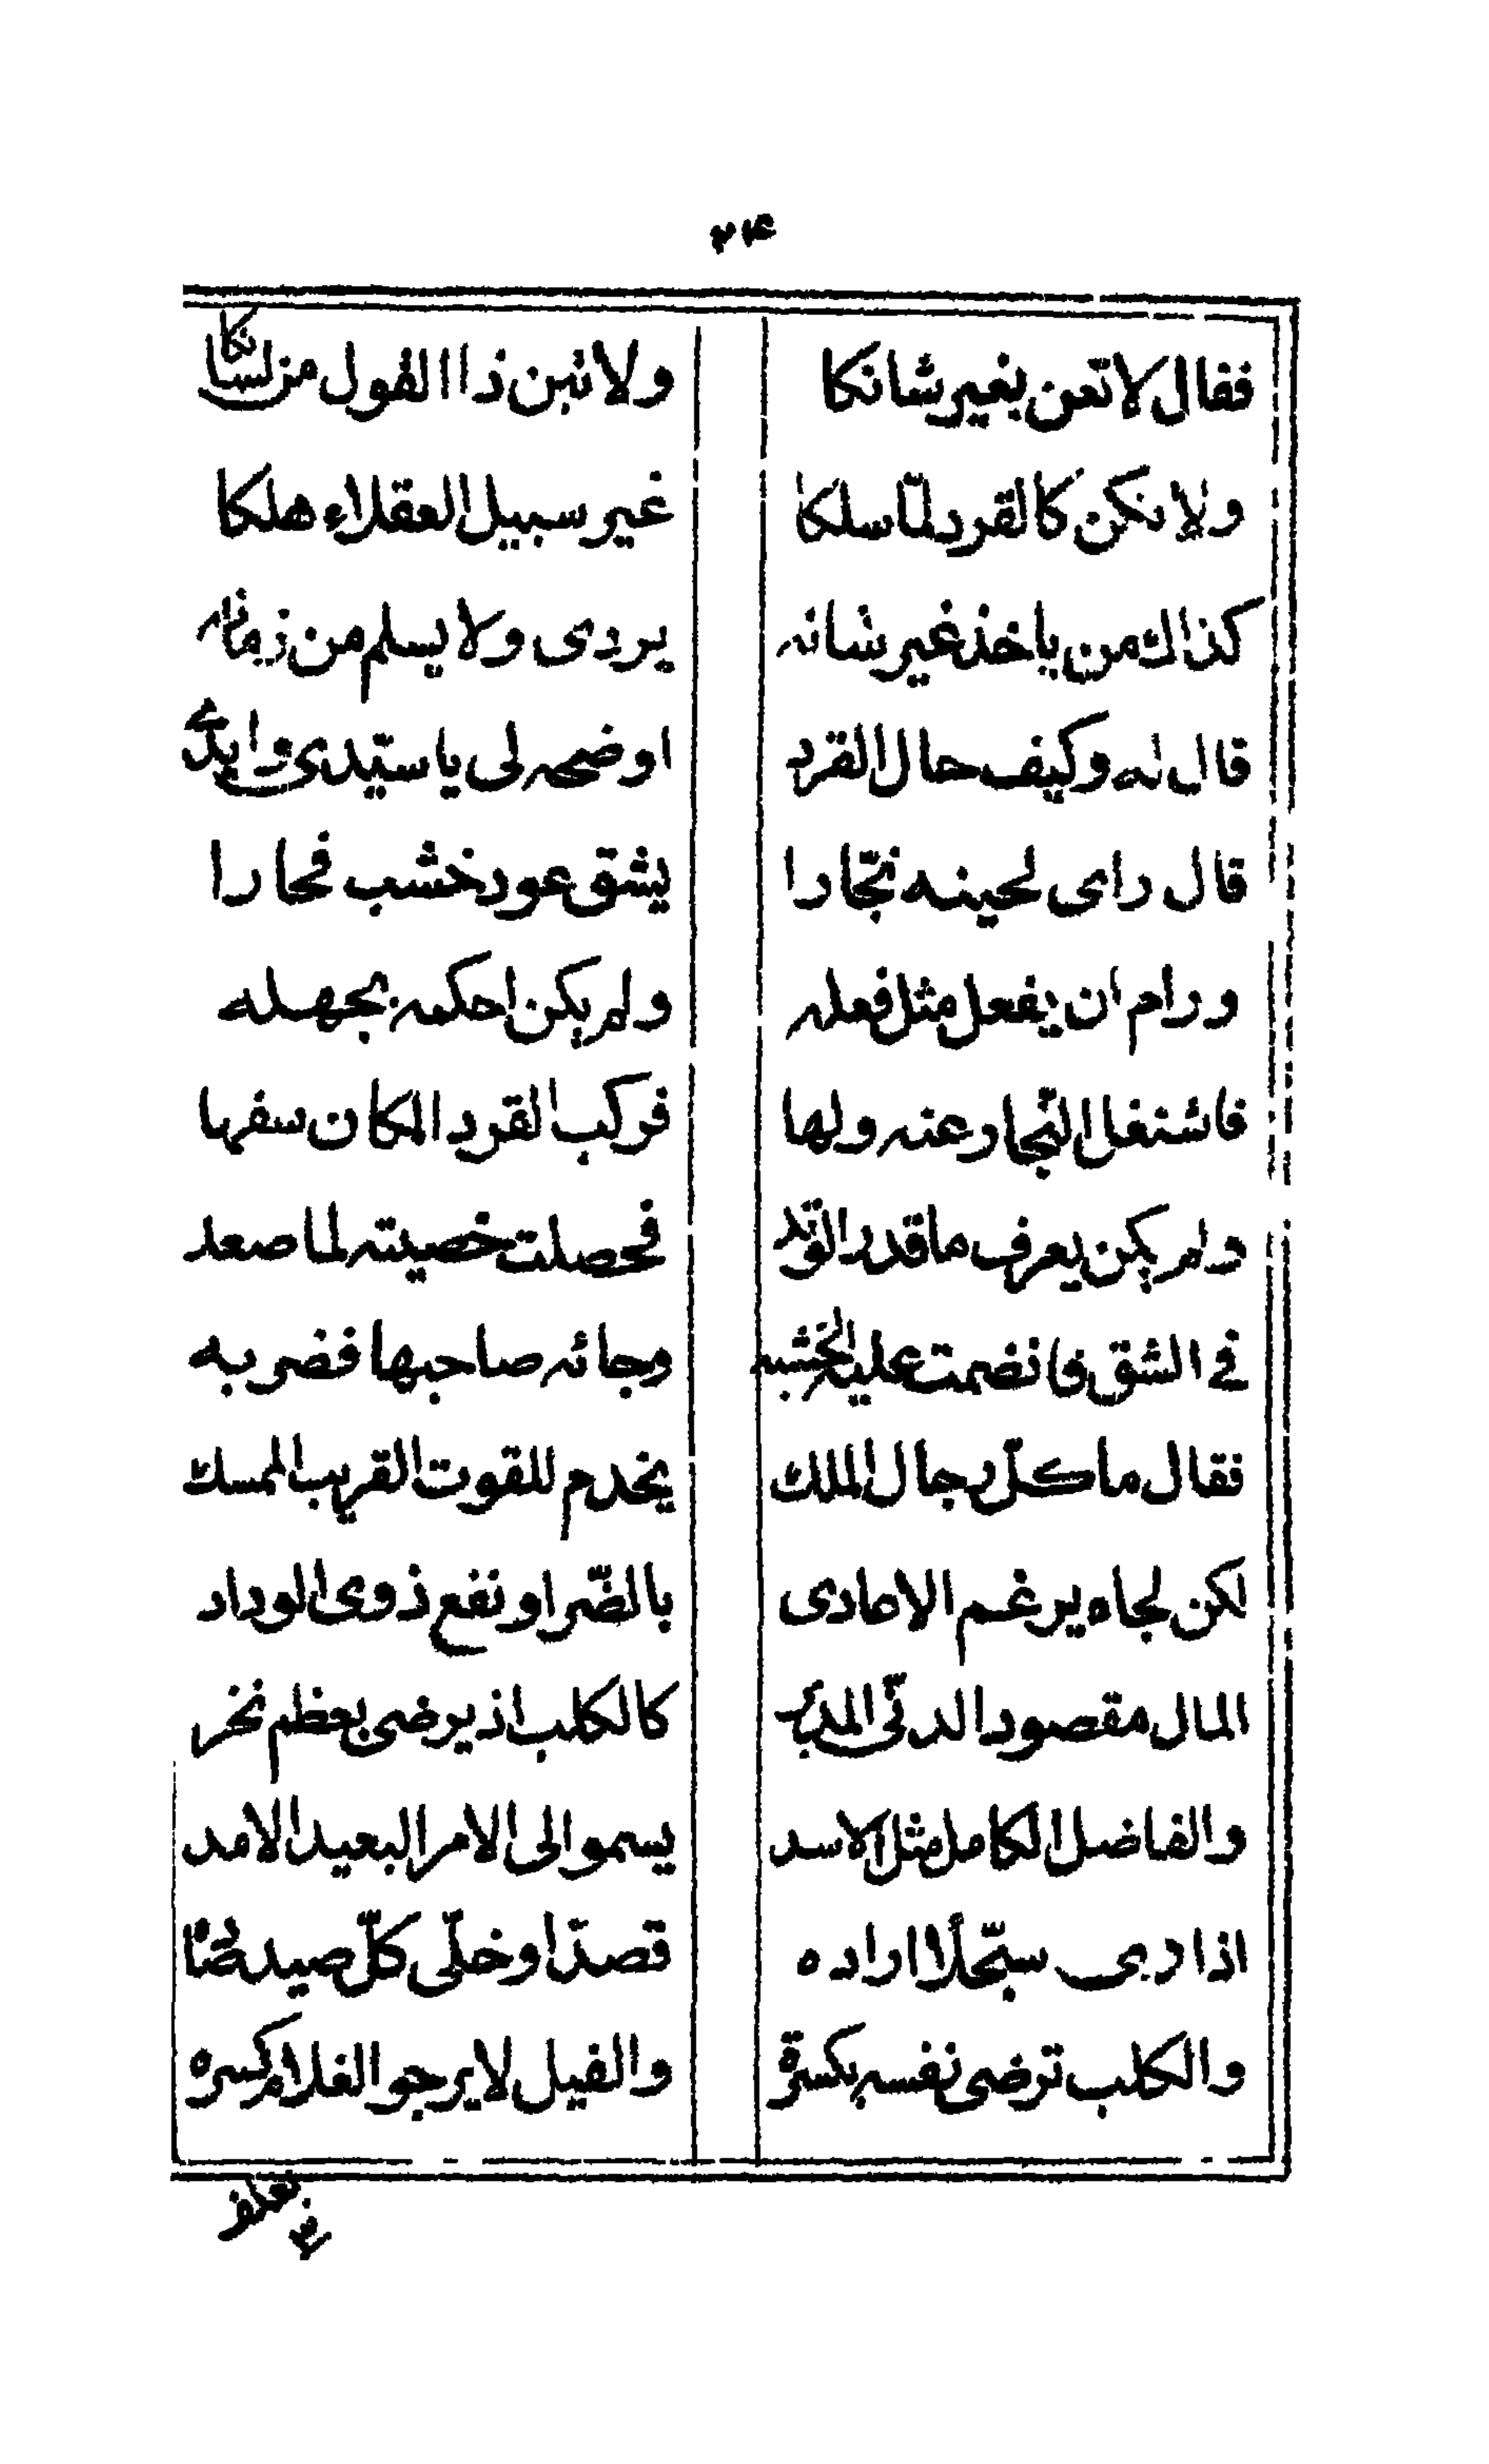 ٢٤
فقال لا تعن بغير شانكا ولا تبن ذا القول من لسانكا
ولا تكن كالقرد لمّا سلكا غير سبيل العقلاء هلكا
كذاك من ياخذ غير شانه يردى ولا يسلم من زمانه
قال له وكيف حال القرد اوضحه لى يا سيّدى وابدى
قال راى لحينه نجّارا يشق عود خشب فحارا
ورام ان يفعل مثل فعله ولم يكن احكمه بجهله
فاشتغل النّجار عنه ولها فركب القرد المكان سفها
ولم يكن يعرف ما قدر الوتد فحصلت خصيته لما صعد
فى الشق فانضمت عليه الخشبه وجائه صاحبها فضربه
فقال ما كلّ رجال الملك يخدم للقوت القريب الممسك
لكن لجاه يرغم الاعادى بالضّر او نفع ذوى الوداد
المال مقصود الدنّى المدبر كالكلب اذ يرضى بعظم نخر
والفاضل الكامل مثل الاسد يسمو الى الامر البعيد الامد
اذا رمى سبّحلا اراده قصدًا وخلّى كلّ صيد
والكلب ترضى نفسه بكسرة والفيل لا يرجو الغلام كسره